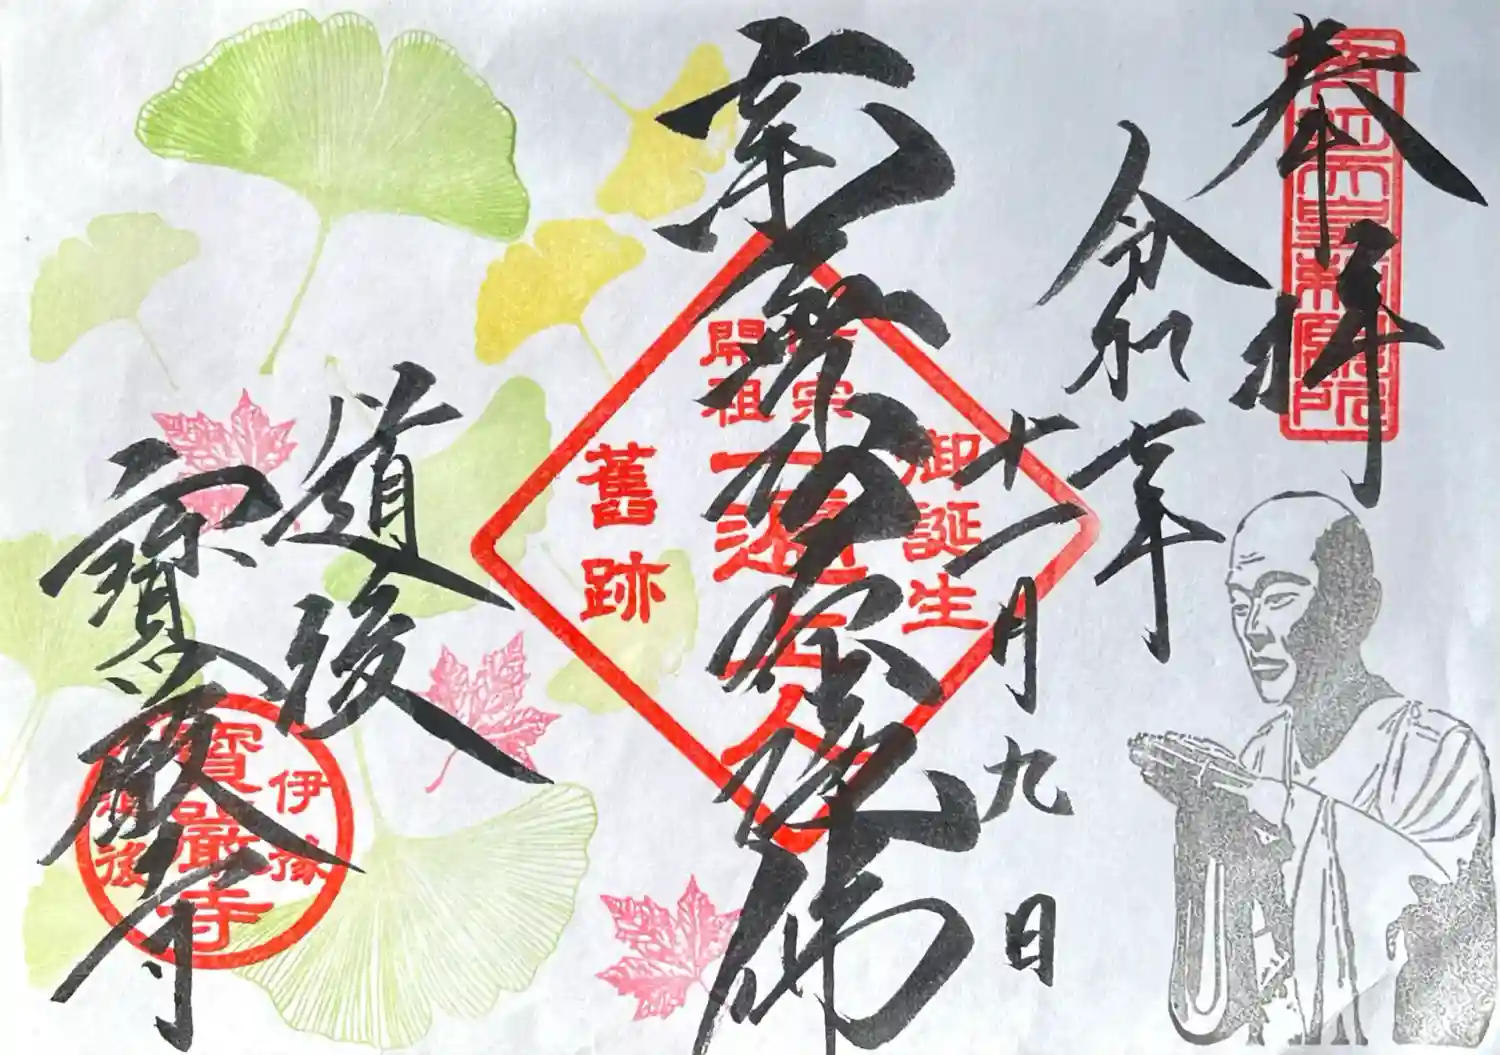 奉拝
令和 年
十一月九日
南無阿弥陀佛
御誕生
宗
開祖
一遍上人
舊跡
道後
寳厳寺
伊豫
寳嚴寺
後